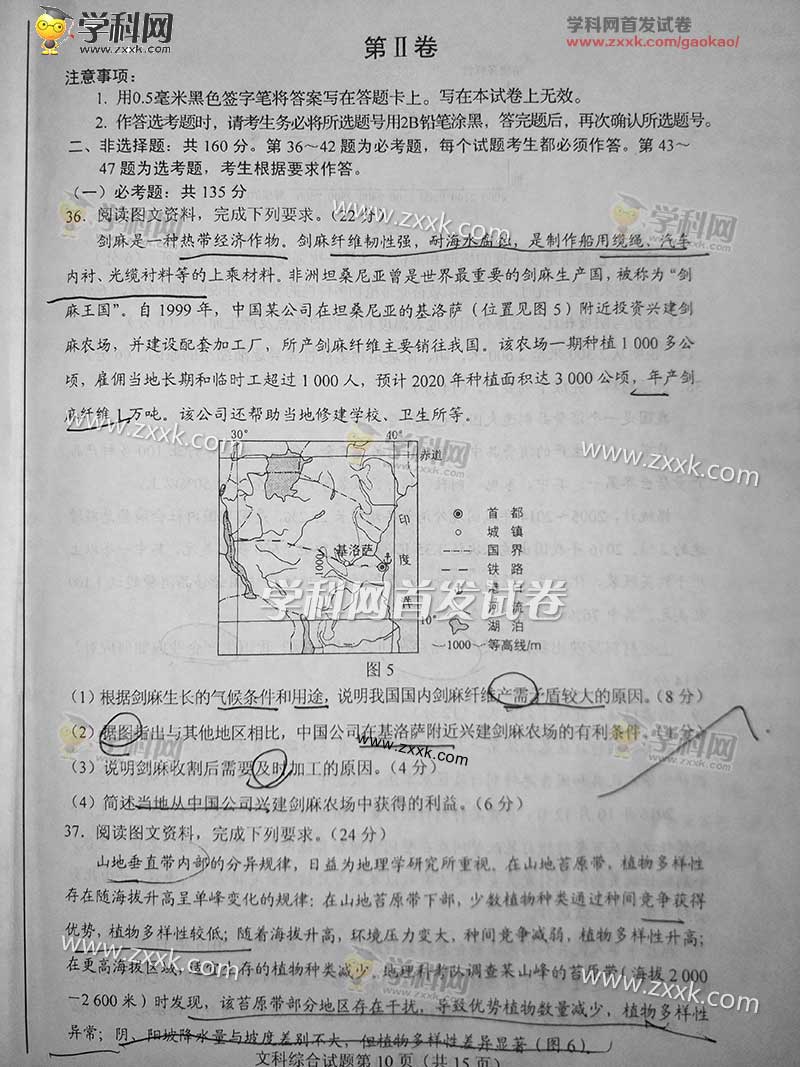 学科网
www.zxxk.com
学科网首发试卷
www.zxxk.com/gaokao/
第Ⅱ卷
注意事项：
1. 用0.5毫米黑色签字笔将答案写在答题卡上。写在本试卷上无效。
2. 作答选考题时，请考生务必将所选题号用2B铅笔涂黑，答完题后，再次确认所选题号。
二、非选择题：共 160 分。第 36～42 题为必考题，每个试题考生都必须作答。第 43～
47 题为选考题，考生根据要求作答。
（一）必考题：共 135 分
36. 阅读图文资料，完成下列要求。（22 分）
剑麻是一种热带经济作物。剑麻纤维韧性强，耐海水腐蚀，是制作船用缆绳、汽车
内衬、光缆衬料等的上乘材料。非洲坦桑尼亚曾是世界最重要的剑麻生产国，被称为“剑
麻王国”。自 1999 年，中国某公司在坦桑尼亚的基洛萨（位置见图 5）附近投资兴建剑
麻农场，并建设配套加工厂，所产剑麻纤维主要销往我国。该农场一期种植 1 000 多公
顷，雇佣当地长期和临时工超过 1 000 人，预计 2020 年种植面积达 3 000 公顷，年产剑
麻纤维 1 万吨。该公司还帮助当地修建学校、卫生所等。
30° 40°
赤道
印
度
洋
基洛萨
1000
10°
首都
城镇
国界
铁路
港口
河流
湖泊
1000 等高线/m
学科网首发试卷
图 5
（1）根据剑麻生长的气候条件和用途，说明我国国内剑麻纤维产需矛盾较大的原因。（8 分）
（2）据图指出与其他地区相比，中国公司在基洛萨附近兴建剑麻农场的有利条件。（4 分）
（3）说明剑麻收割后需要及时加工的原因。（4 分）
（4）简述当地从中国公司兴建剑麻农场中获得的利益。（6 分）
37. 阅读图文资料，完成下列要求。（24 分）
山地垂直带内部的分异规律，日益为地理学研究所重视。在山地苔原带，植物多样性
存在随海拔升高呈单峰变化的规律：在山地苔原带下部，少数植物种类通过种间竞争获得
优势，植物多样性较低；随着海拔升高，环境压力变大，种间竞争减弱，植物多样性升高；
在更高海拔区域，适宜生存的植物种类减少。地理科考队调查某山峰的苔原带（海拔 2 000
－2 600 米）时发现，该苔原带部分地区存在干扰，导致优势植物数量减少，植物多样性
异常；阴、阳坡降水量与坡度差别不大，但植物多样性差异显著（图 6）。
文科综合试题第 10 页（共 15 页）